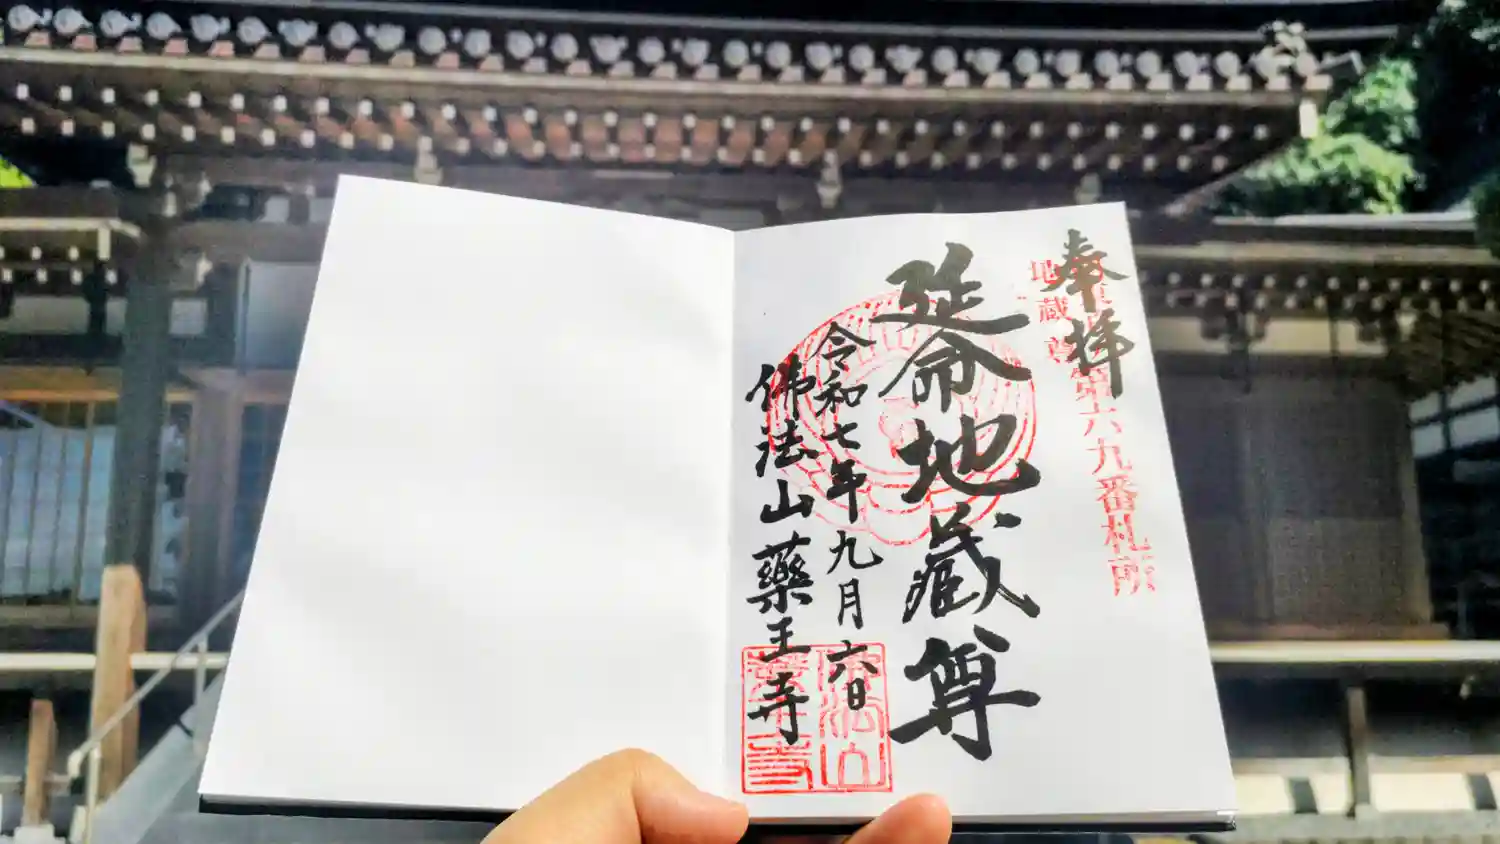 奉拝
地蔵尊
第六九番札所
延命地蔵尊
令和七年九月六日
佛法山藥王寺